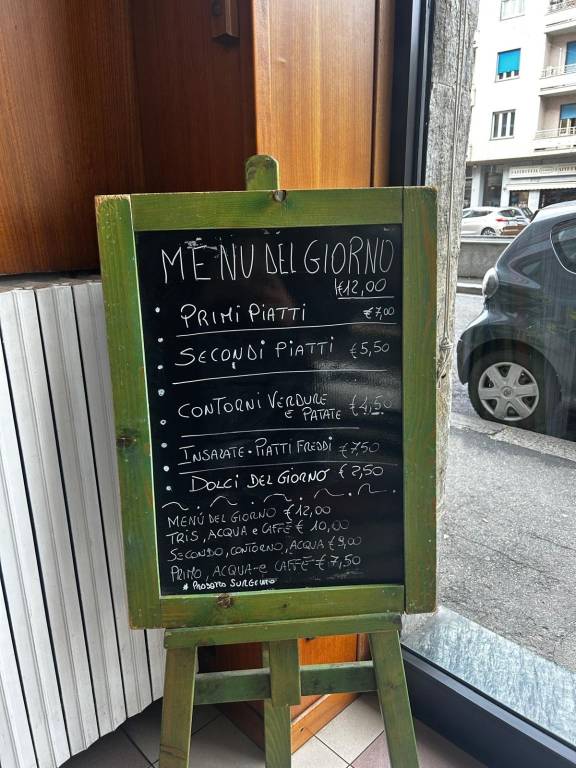 MENÙ DEL GIORNO
€12,00
PRIMI PIATTI €7,00
SECONDI PIATTI €5,50
CONTORNI VERDURE
e PATATE €4,50
INSALATE·PIATTI FREDDI €7,50
DOLCI DEL GIORNO €2,50
MENÙ DEL GIORNO €12,00
TRIS, ACQUA e CAFFÈ € 10,00
SECONDO, CONTORNO, ACQUA €9,00
PRIMO, ACQUA e CAFFÈ €7,50
* PRODOTTO SURGELATO